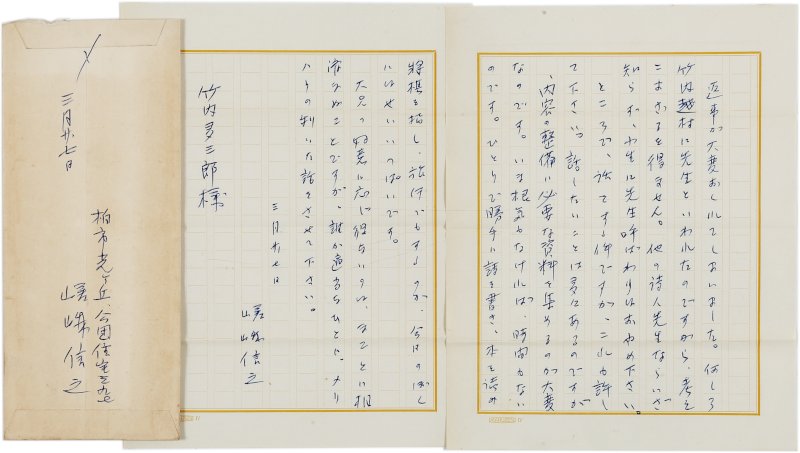 返事が大変おくれてしまいました。何しろ
竹内越村に先生といわれたのですから、考え
こまざるを得ません。他の詩人先生ならいざ
知らず、小生に先生呼ばわりはおやめ下さい。
ところで、法てす件ですが、これも許し
て下さい。話したいことは多々あるのですが
、内容の整備に必要な資料を集めるのが大変
なのです。いま根気もなければ、時間もない
のです。ひとりで勝手に詩を書き、本を読み
将棋を指し、旅行でもするのが、今はのぞし
にはせいいっぱいです。
大兄の好意に応じ得ないのは、まことに相
済まぬことですが、誰か適当なひとに、メリ
ハリの利いた話をさせて下さい。
三月廿七日
嵯峨信之
竹内多三郎様
三月廿七日
柏市光ヶ丘、公団住宅
嵯峨信之